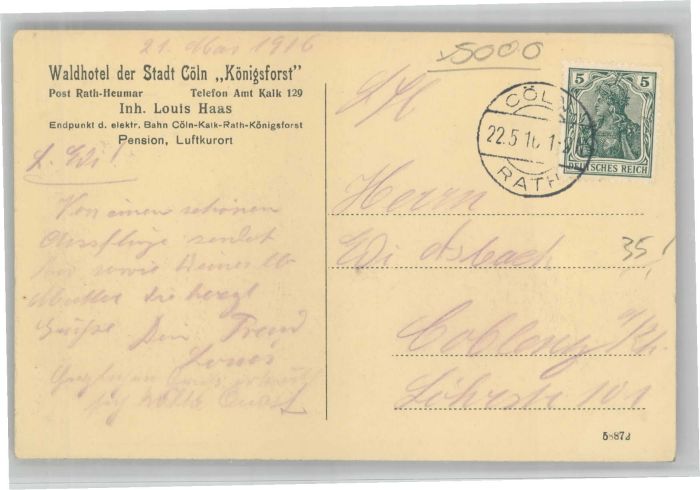 21. Mai 1916
Waldhotel der Stadt Cöln „Königsforst"
Post Rath-Heumar Telefon Amt Kalk 129
Inh. Louis Haas
Endpunkt d. elektr. Bahn Cöln-Kalk-Rath-Königsforst
Pension, Luftkurort
L. Edi!
Von einem schönen
Ausfluge sendet
Dir sowie Deiner lb
Mutter die herzl
Grüße Dein Freund
5000
5
DEUTSCHES REICH
CÖLN
22.5.16
RATH
Herrn
Edi
35!
Coblenz a/Rh.
Löhrstr 101